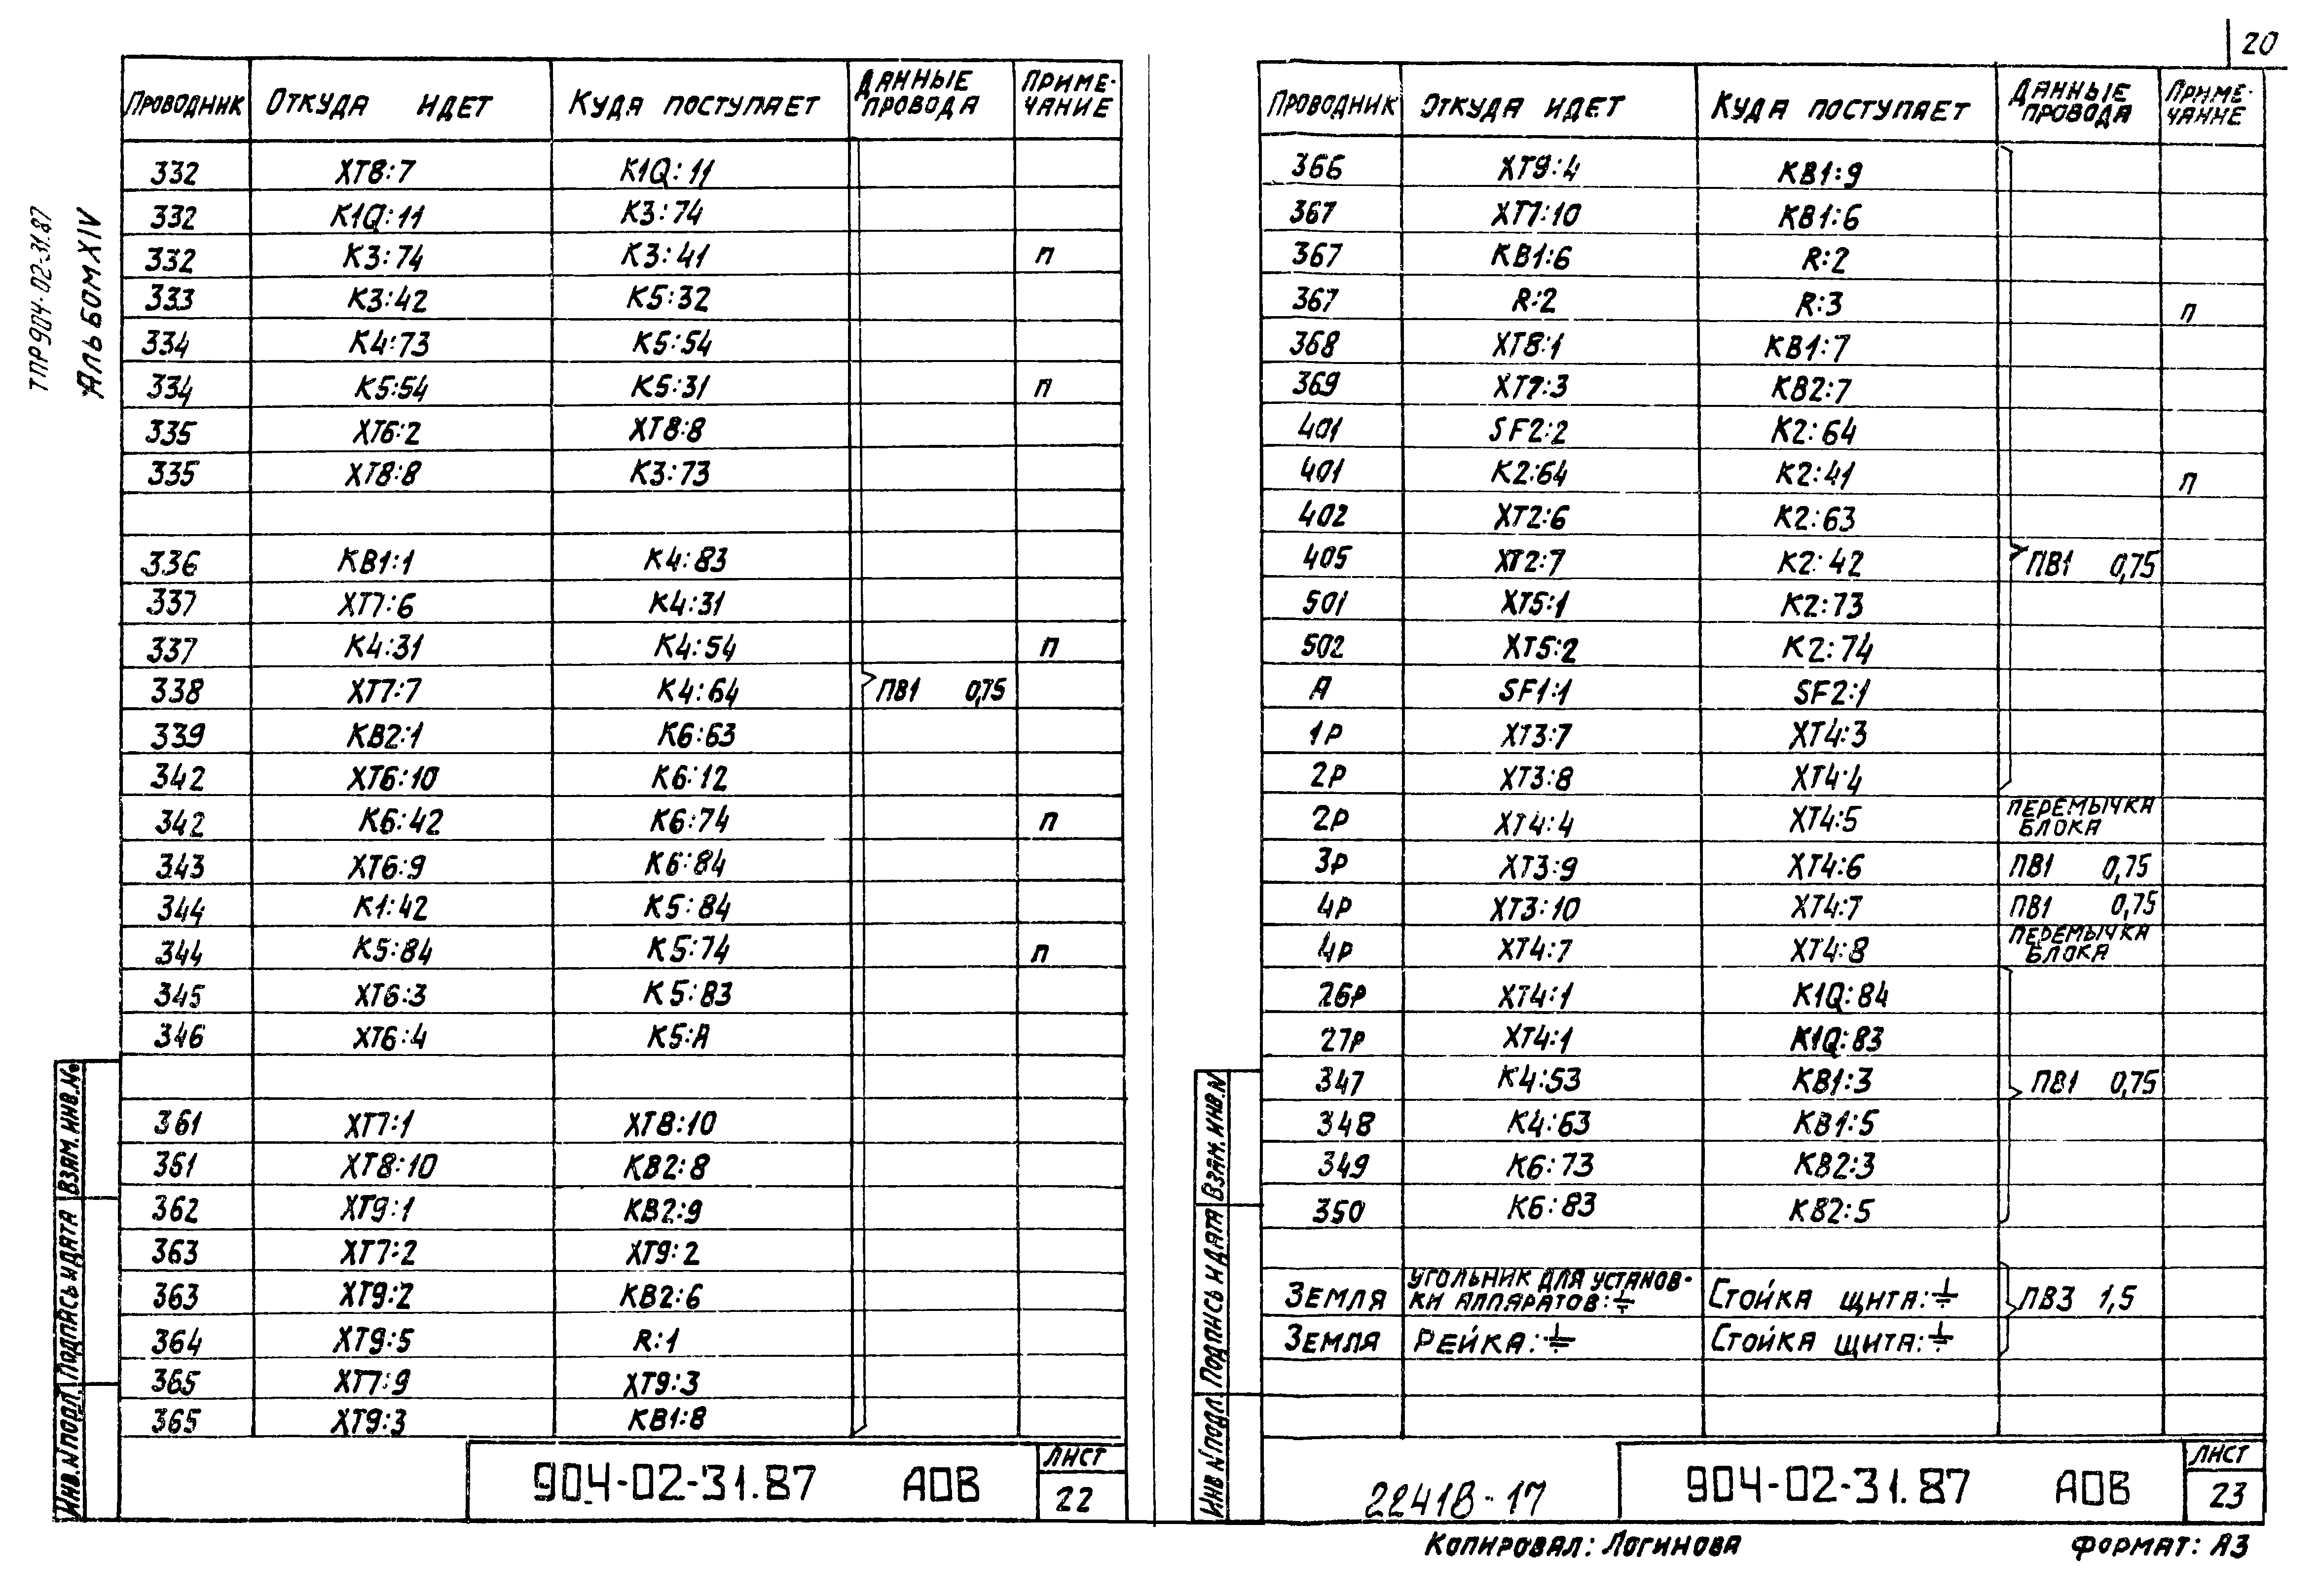 20
ТПР904-02-31.87
АЛЬБОМ XIV
ПРОВОДНИК ОТКУДА ИДЕТ КУДА ПОСТУПАЕТ ДАННЫЕ ПРОВОДА ПРИМЕ-ЧАНИЕ
332 XT8:7 K1Q:11
332 K1Q:11 K3:74
332 K3:74 K3:41 п
333 K3:42 K5:32
334 K4:73 K5:54
334 K5:54 K5:31 п
335 XT6:2 XT8:8
335 XT8:8 K3:73
336 KB1:1 K4:83
337 XT7:6 K4:31
337 K4:31 K4:54 п
338 XT7:7 K4:64 ПВ1 0,75
339 KB2:1 K6:63
342 XT6:10 K6:12
342 K6:42 K6:74 п
343 XT6:9 K6:84
344 K1:42 K5:84
344 K5:84 K5:74 п
345 XT6:3 K5:83
346 XT6:4 K5:A
361 XT7:1 XT8:10
361 XT8:10 KB2:8
362 XT9:1 KB2:9
363 XT7:2 XT9:2
363 XT9:2 KB2:6
364 XT9:5 R:1
365 XT7:9 XT9:3
365 XT9:3 KB1:8
ИНВ.N ПОДЛ. ПОДПИСЬ И ДАТА ВЗАМ.ИНВ.№
904-02-31.87 АОВ
ЛИСТ
22
ПРОВОДНИК ОТКУДА ИДЕТ КУДА ПОСТУПАЕТ ДАННЫЕ ПРОВОДА ПРИМЕ-ЧАНИЕ
366 XT9:4 KB1:9
367 XT7:10 KB1:6
367 KB1:6 R:2
367 R:2 R:3 п
368 XT8:1 KB1:7
369 XT7:3 KB2:7
401 SF2:2 K2:64
401 K2:64 K2:41 п
402 XT2:6 K2:63
405 XT2:7 K2:42 ПВ1 0,75
501 XT5:1 K2:73
502 XT5:2 K2:74
A SF1:1 SF2:1
1P XT3:7 XT4:3
2P XT3:8 XT4:4
2P XT4:4 XT4:5 ПЕРЕМЫЧКА БЛОКА
3P XT3:9 XT4:6 ПВ1 0,75
4P XT3:10 XT4:7 ПВ1 0,75
4P XT4:7 XT4:8 ПЕРЕМЫЧКА БЛОКА
26P XT4:1 K1Q:84
27P XT4:1 K1Q:83
347 K4:53 KB1:3 ПВ1 0,75
348 K4:63 KB1:5
349 K6:73 KB2:3
350 K6:83 KB2:5
ЗЕМЛЯ УГОЛЬНИК ДЛЯ УСТАНОВ-КИ АППАРАТОВ:⏚ СТОЙКА ЩИТА:⏚ ПВ3 1,5
ЗЕМЛЯ РЕЙКА:⏚ СТОЙКА ЩИТА:⏚
ИНВ N ПОДЛ. ПОДПИСЬ И ДАТА ВЗАМ.ИНВ.N
22418-17
904-02-31.87 АОВ
ЛИСТ
23
КОПИРОВАЛ: ЛОГИНОВА ФОРМАТ: А3